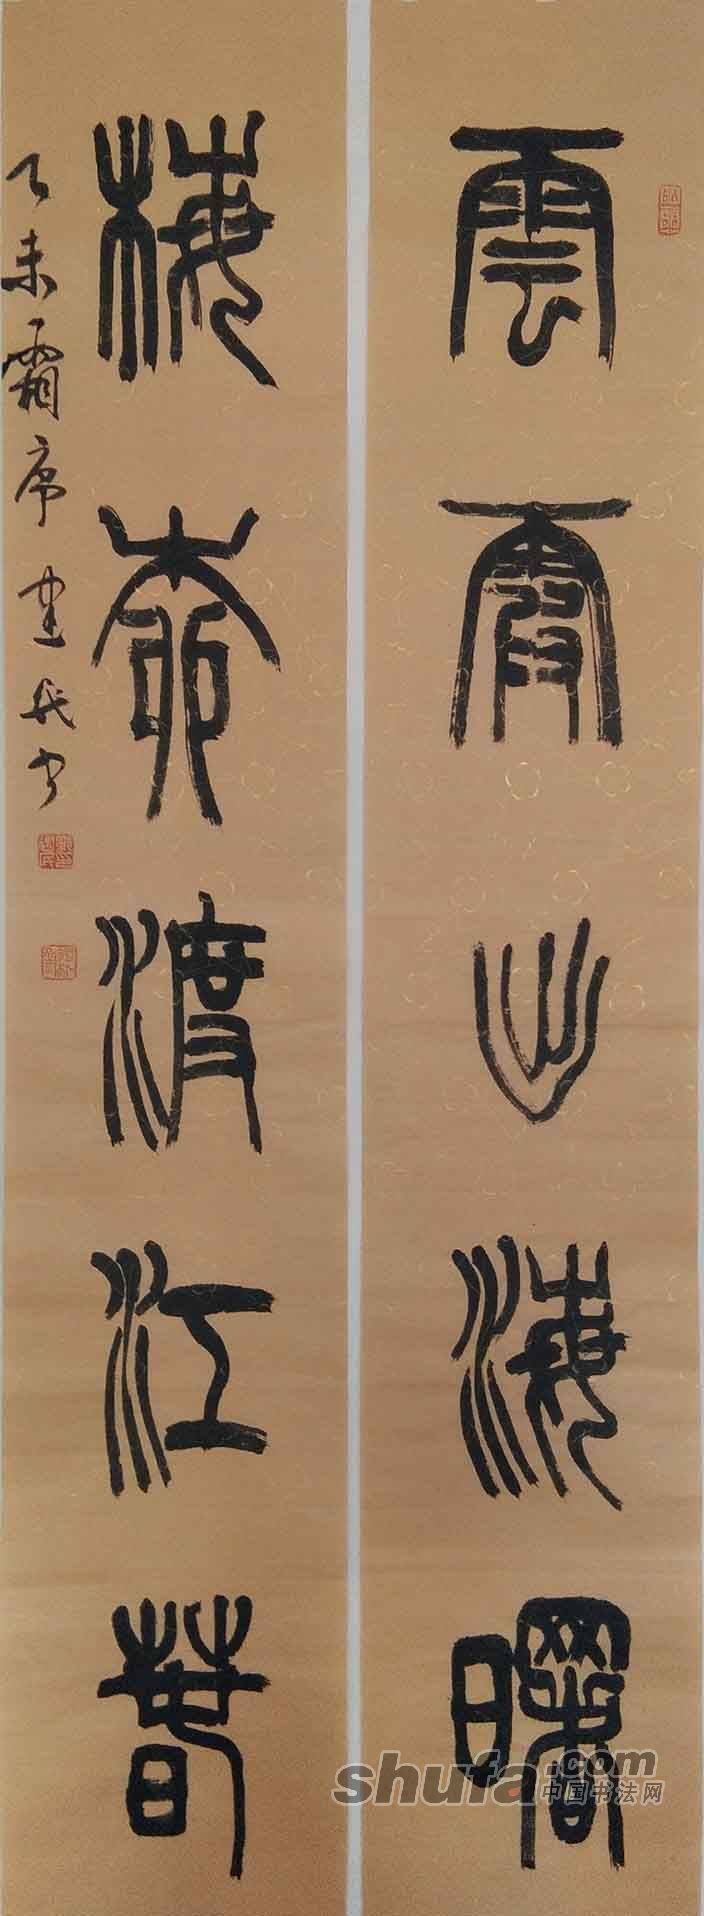 雲霞出海曙
梅桺渡江春
乙未霜序建民书
shufa.com
中国书法网